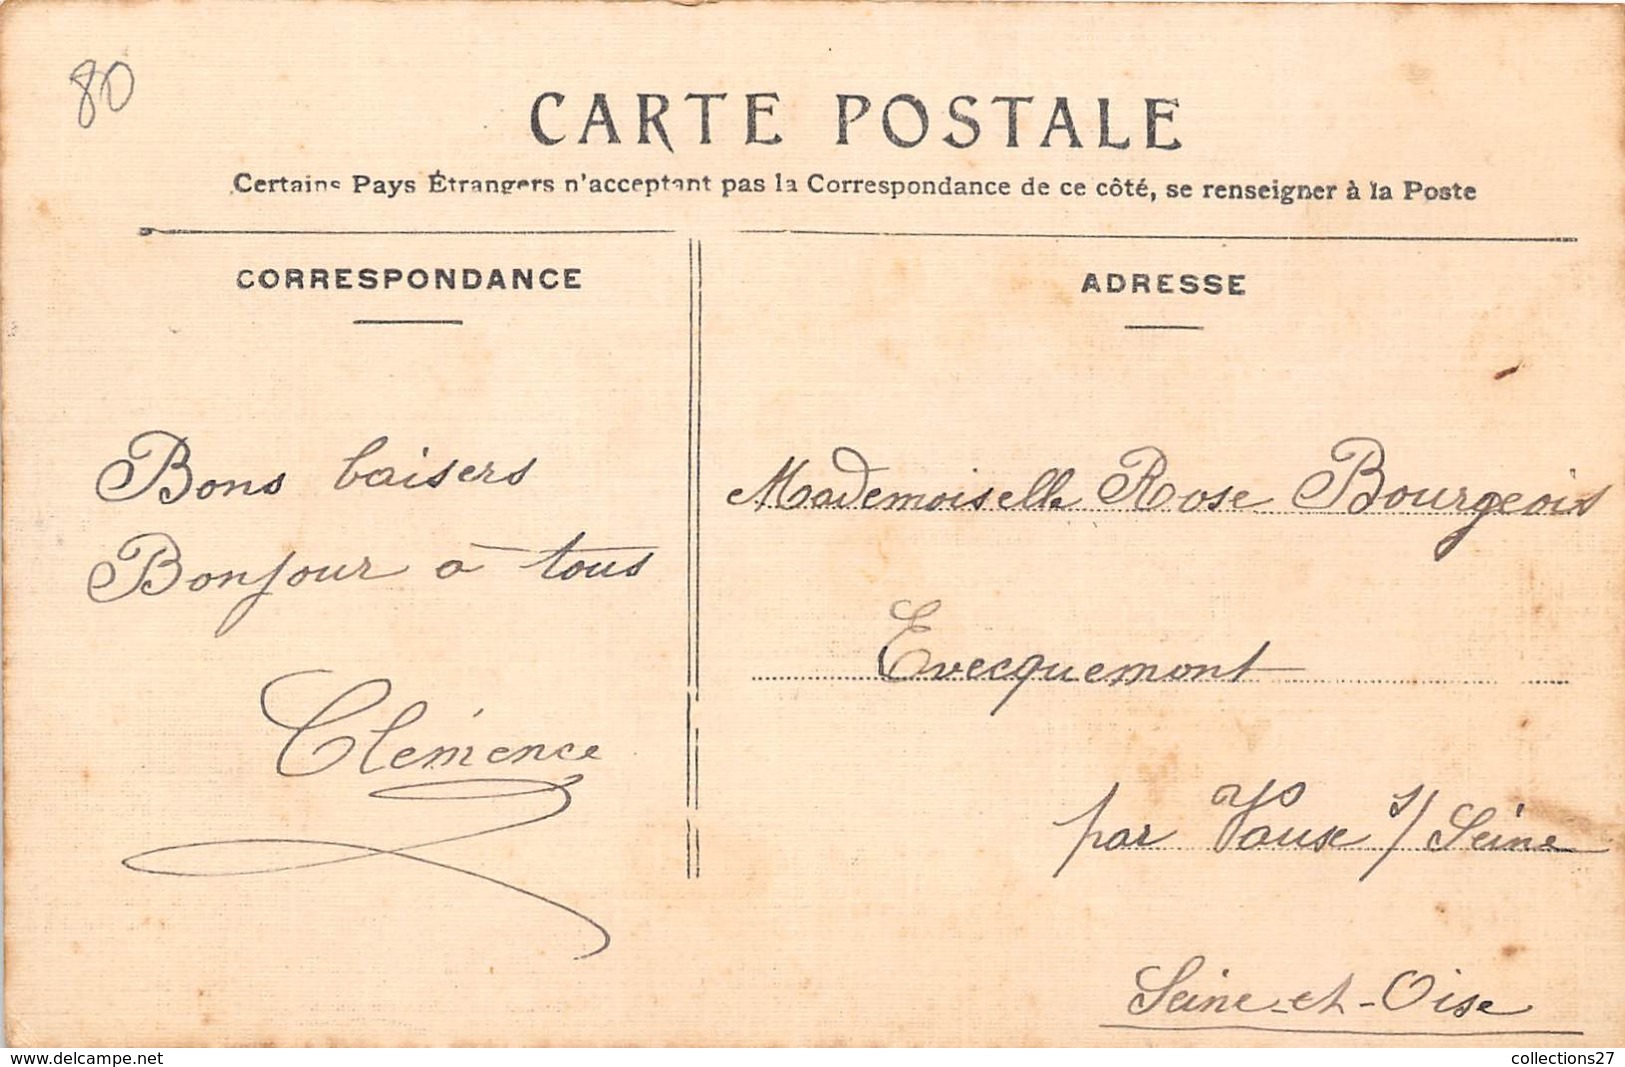 80
CARTE POSTALE
Certains Pays Étrangers n'acceptant pas la Correspondance de ce côté, se renseigner à la Poste
CORRESPONDANCE
Bons baisers
Bonjour à tous
Clémence
ADRESSE
Mademoiselle Rose Bourgeois
Evecquemont
par Vaux s/ Seine
Seine-et-Oise
www.delcampe.net
collections27